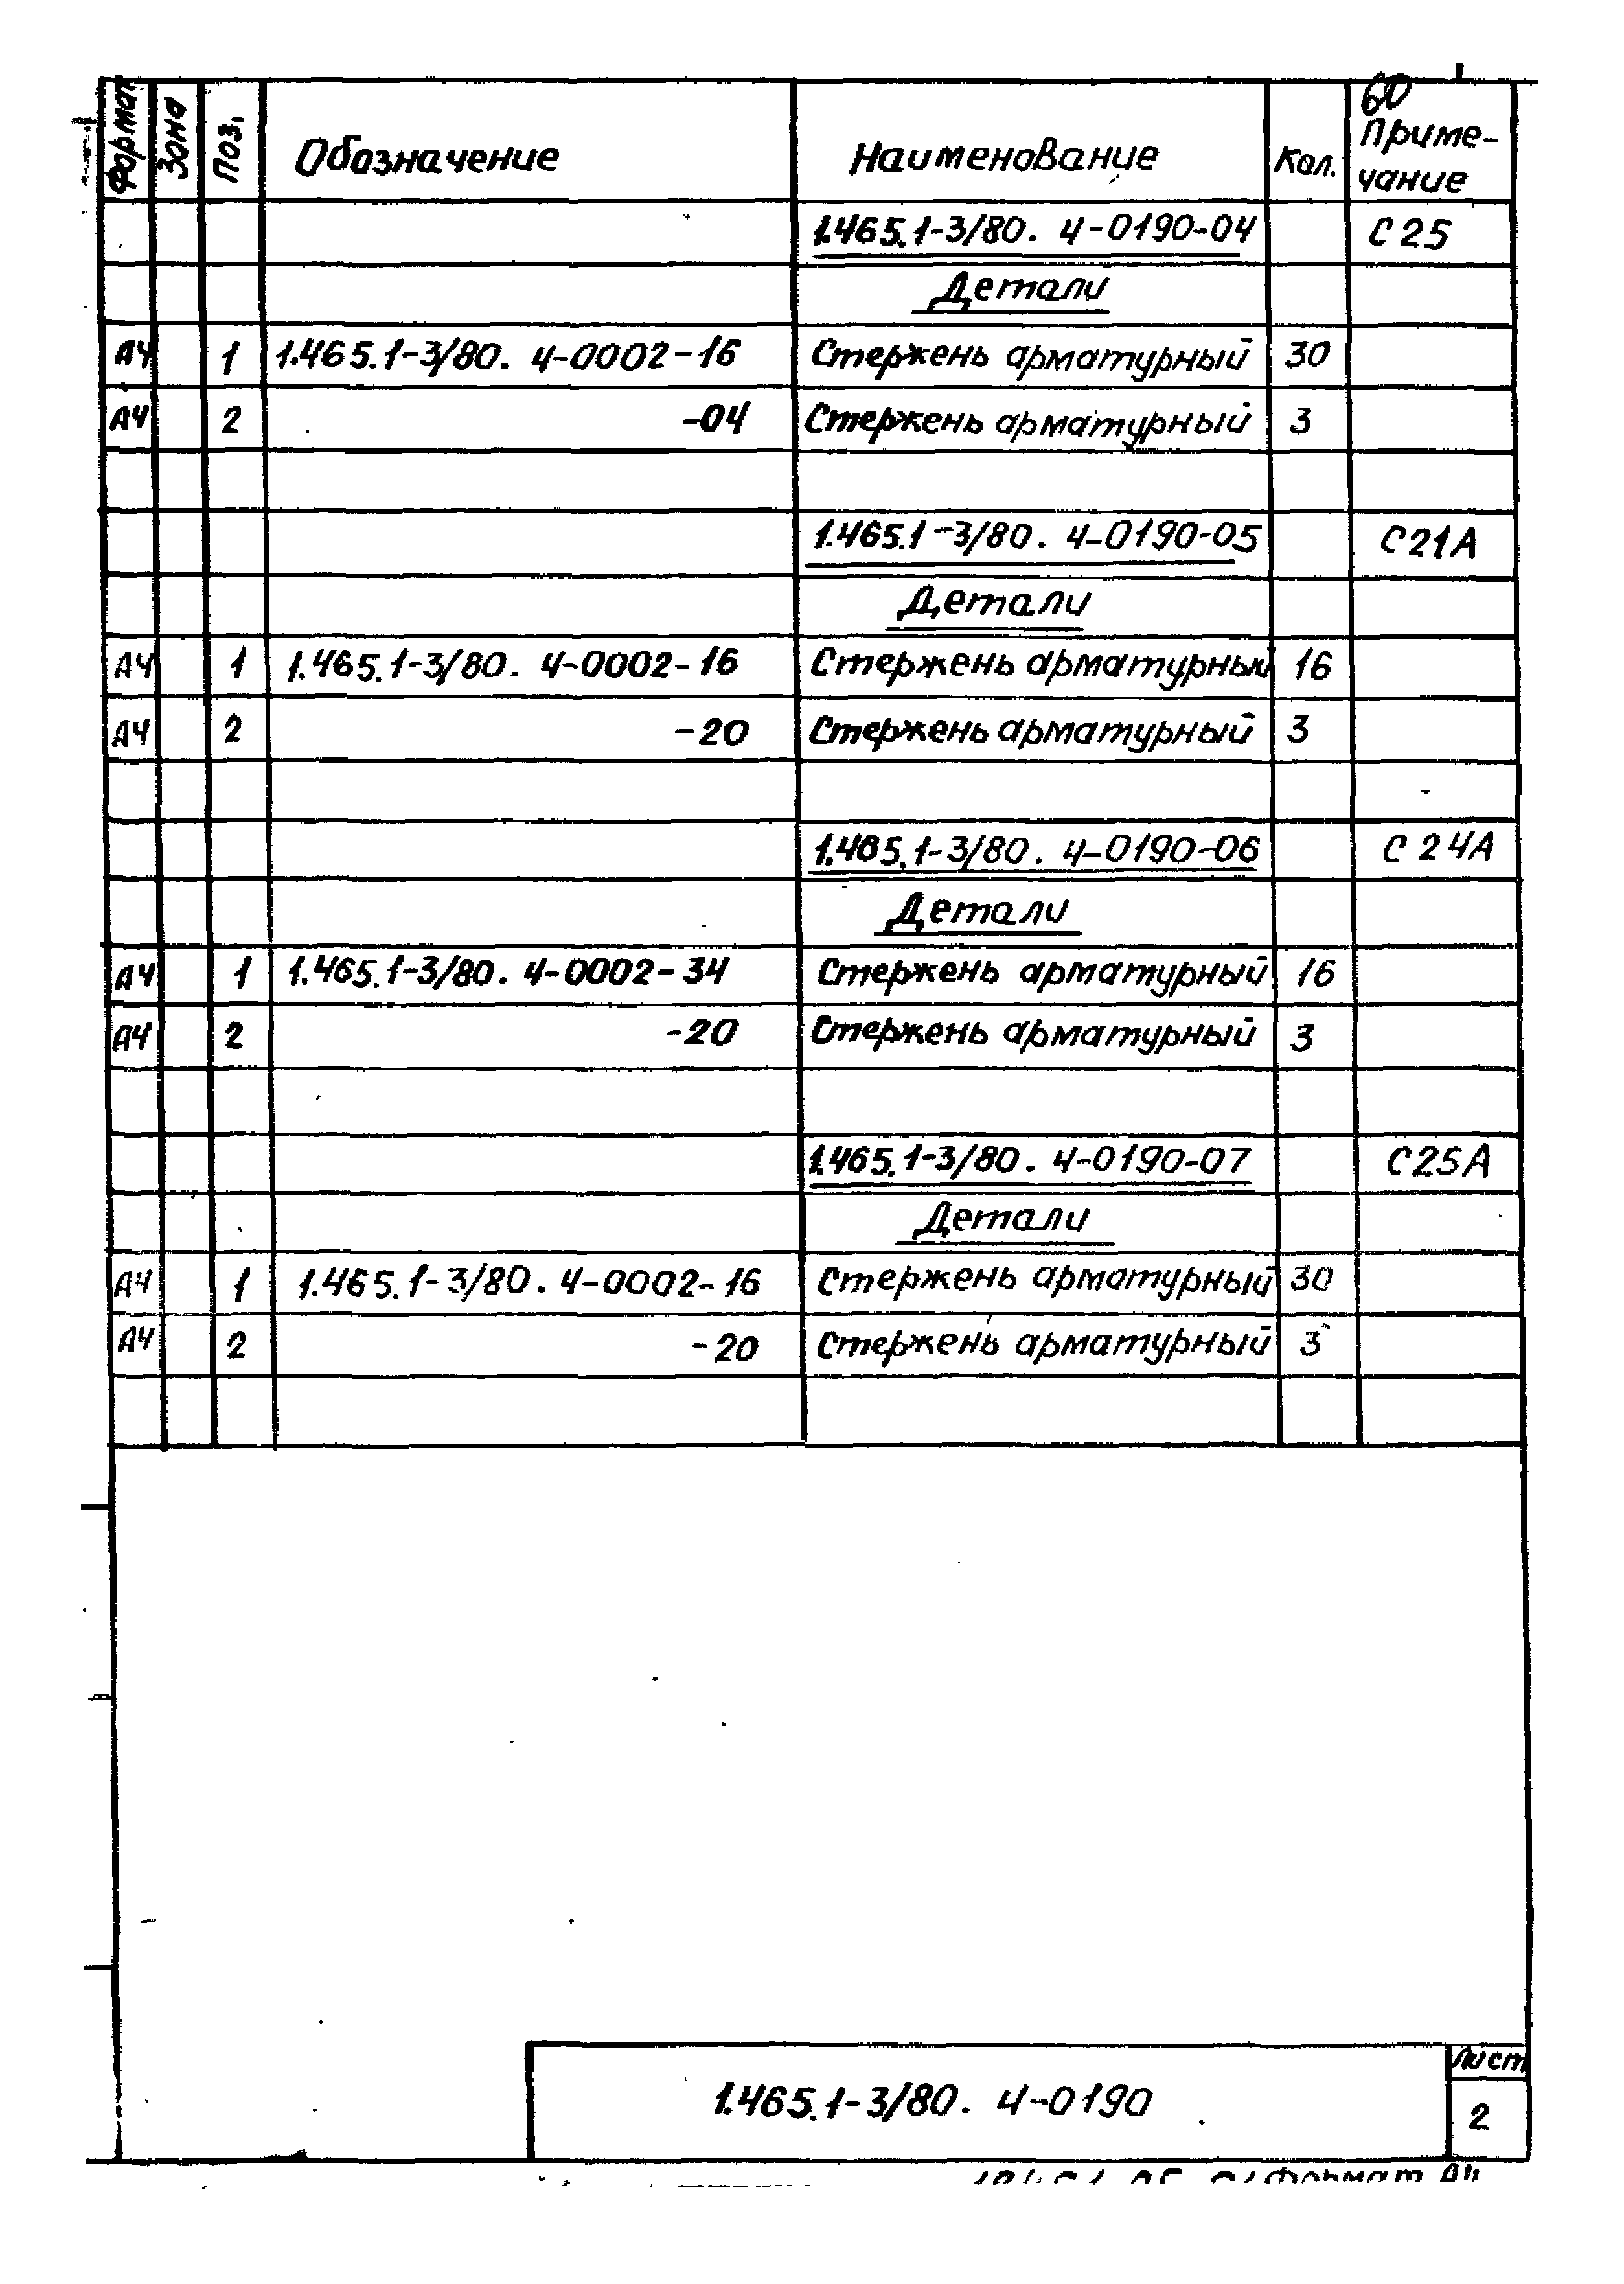 60
Формат Зона Поз. Обозначение Наименование Кол. Приме-
чание
1.465.1-3/80. 4-0190-04 С25
Детали
А4 1 1.465.1-3/80. 4-0002-16 Стержень арматурный 30
А4 2 -04 Стержень арматурный 3
1.465.1-3/80. 4-0190-05 С21А
Детали
А4 1 1.465.1-3/80. 4-0002-16 Стержень арматурный 16
А4 2 -20 Стержень арматурный 3
1.465.1-3/80. 4-0190-06 С24А
Детали
А4 1 1.465.1-3/80. 4-0002-34 Стержень арматурный 16
А4 2 -20 Стержень арматурный 3
1.465.1-3/80. 4-0190-07 С25А
Детали
А4 1 1.465.1-3/80. 4-0002-16 Стержень арматурный 30
А4 2 -20 Стержень арматурный 3
Лист
1.465.1-3/80. 4-0190 2
Формат А4